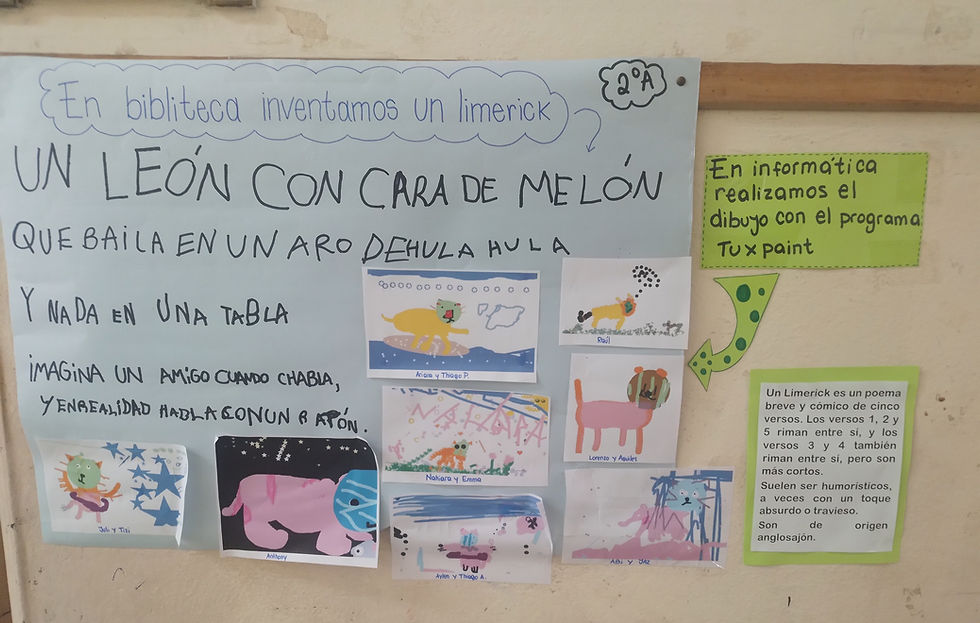 En bibliteca inventamos un limerick
2ºA
UN LEÓN CON CARA DE MELÓN
QUE BAILA EN UN ARO DEHULA HULA
Y NADA EN UNA TABLA
IMAGINA UN AMIGO CUANDO CHABLA,
Y ENREALIDAD HABLA CONUN RATÓN.
Ariana y Thiago P.
Raúl
Nahiara y Emma
Lorenzo y Aquiles
Juli y Tizi
Anthony
Aylen y Thiago A.
y
En informática
realizamos el
dibuyo con el programa
Tuxpaint
Un Limerick es un poema
breve y cómico de cinco
versos. Los versos 1, 2 y
5 riman entre sí, y los
versos 3 y 4 también
riman entre sí, pero son
más cortos.
Suelen ser humorísticos,
a veces con un toque
absurdo o travieso.
Son de origen
anglosajón.